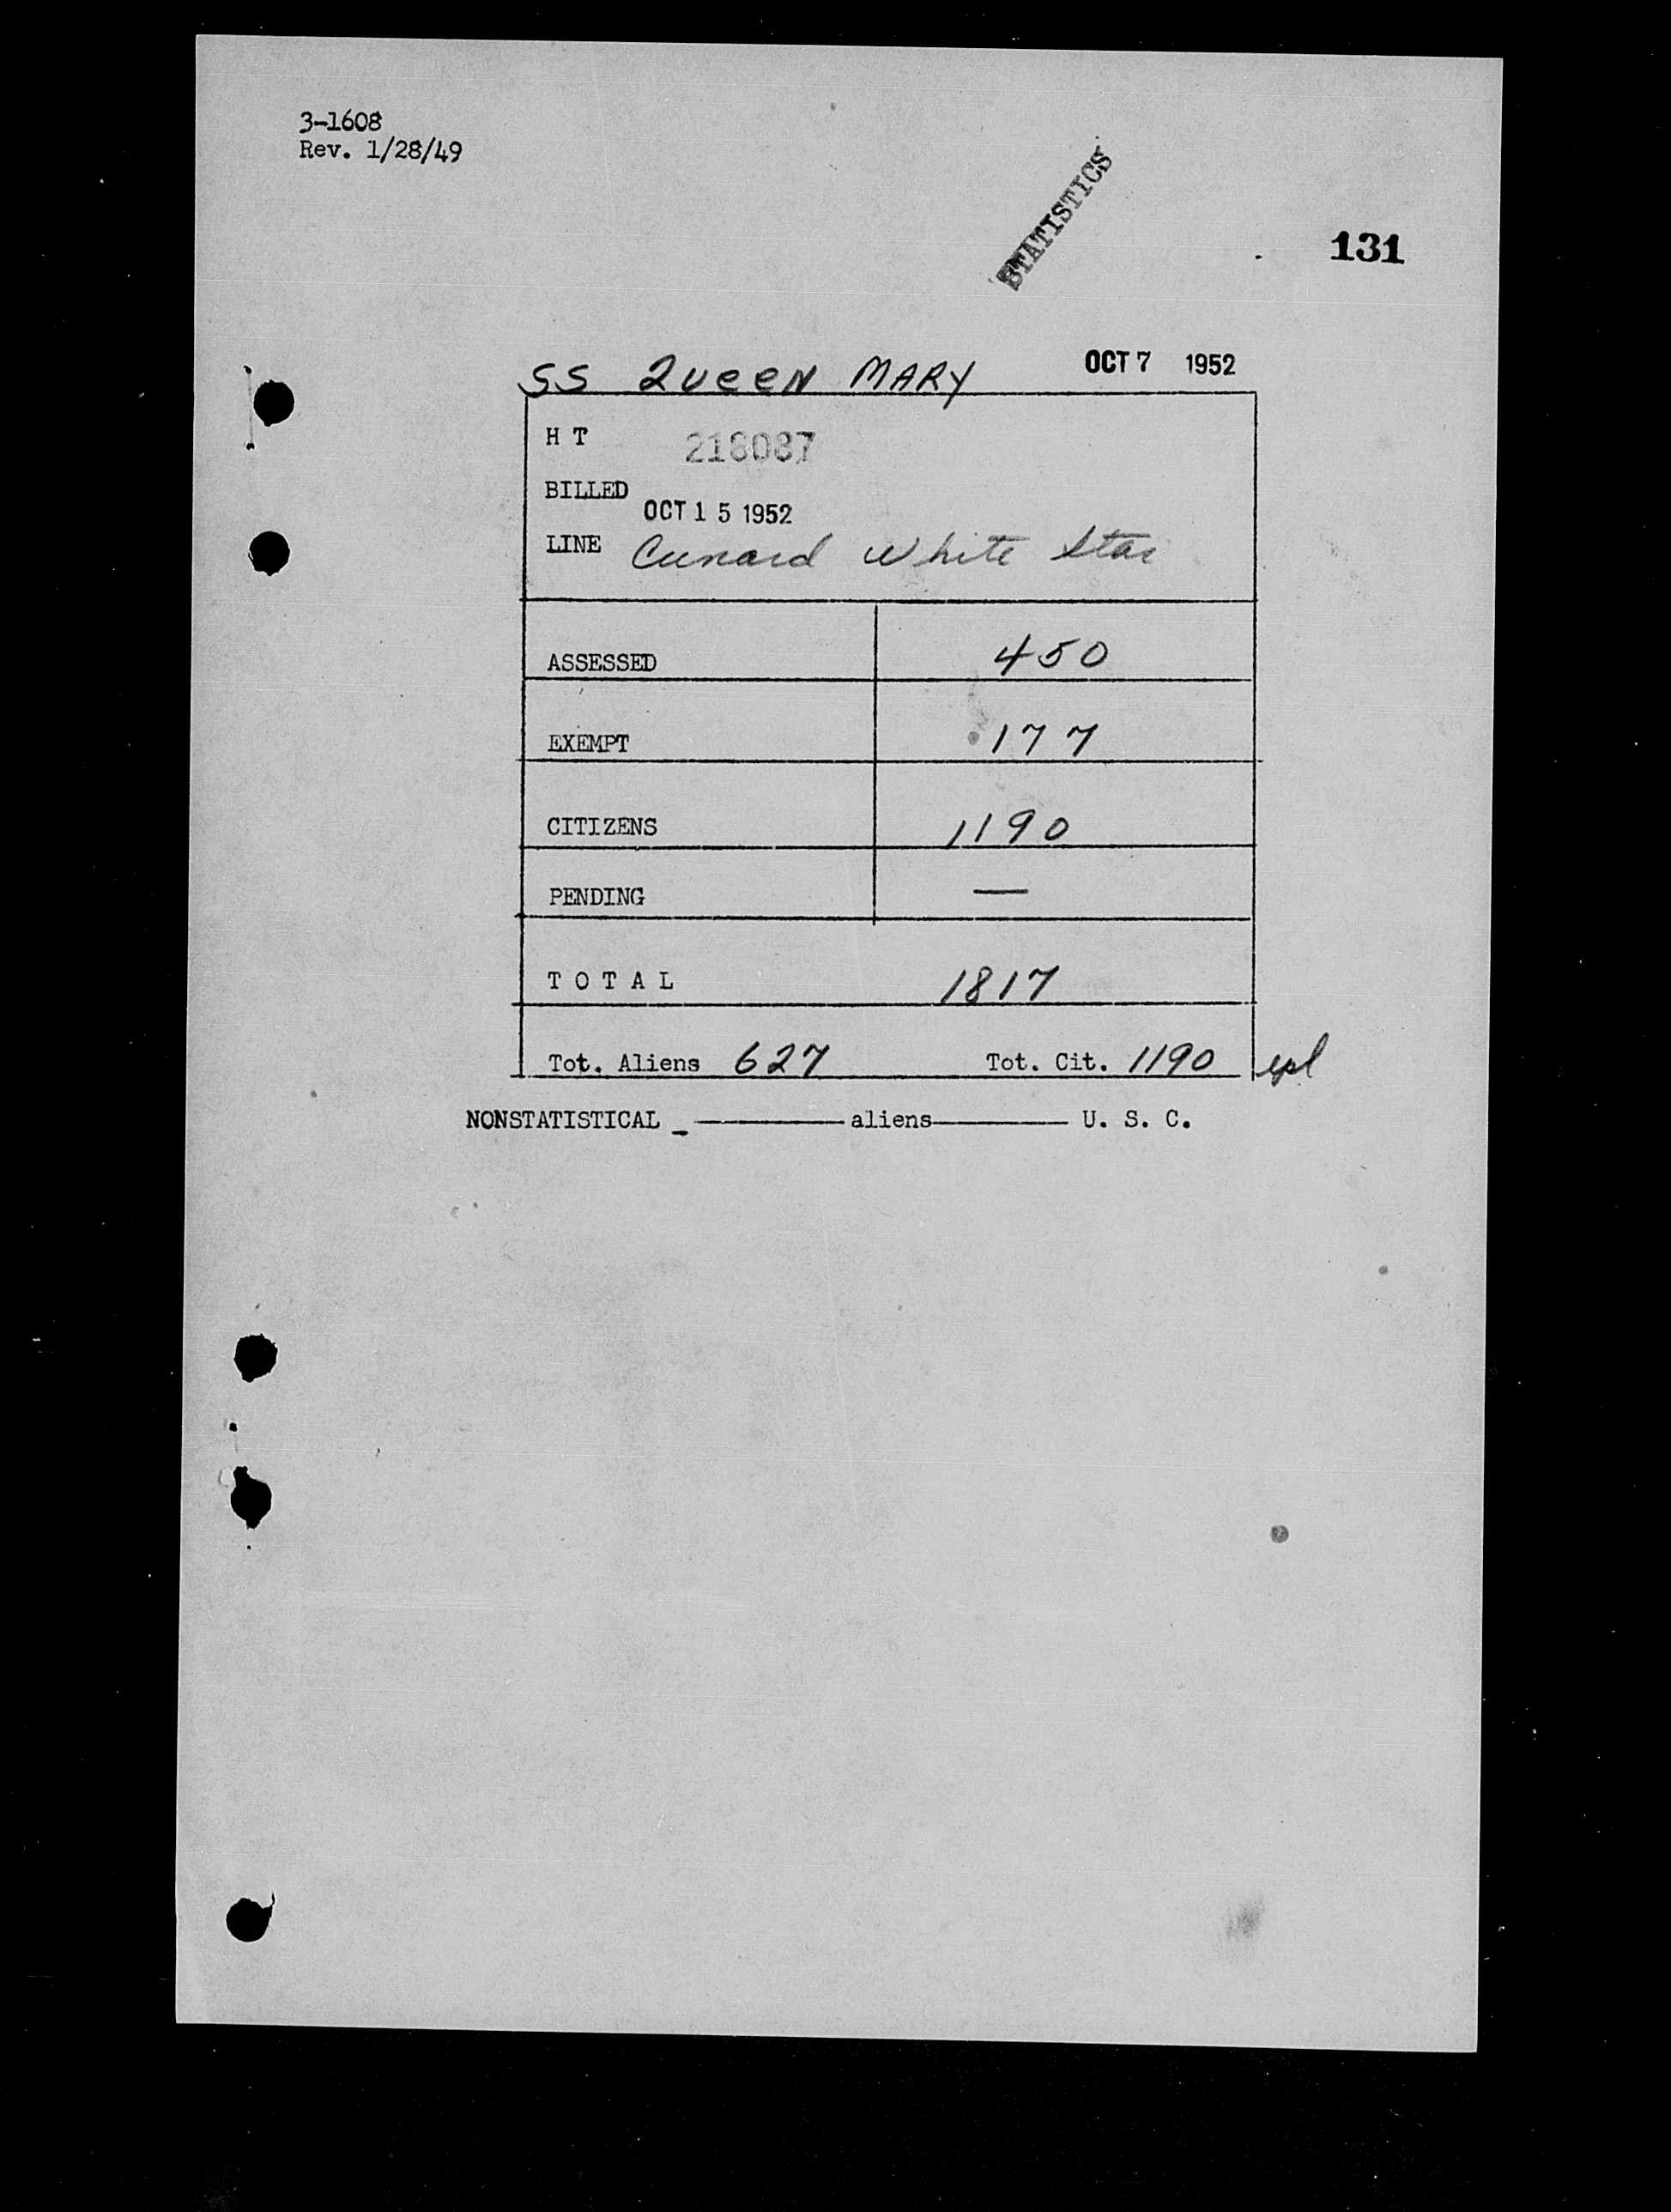 3-1608
Rev. 1/28/49
STATISTICS
131
SS QUEEN MARY OCT 7 1952
H T 218087
BILLED
OCT 15 1952
LINE Cunard White Star
ASSESSED 450
EXEMPT 177
CITIZENS 1190
PENDING —
T O T A L 1817
Tot. Aliens 627 Tot. Cit. 1190
NONSTATISTICAL _ ———— aliens———— U. S. C.